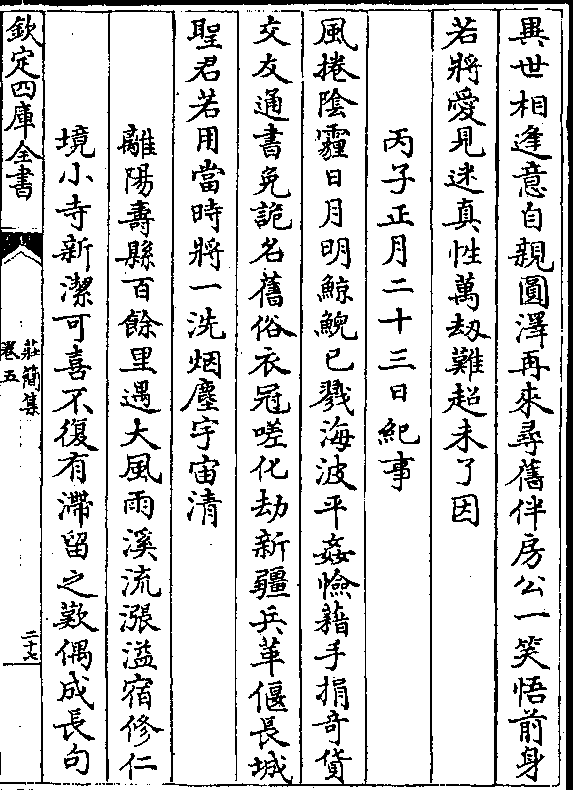 異世相逢意自親圓澤再來尋舊伴房公一笑悟前身
若將愛見迷真性萬劫難超未了因
丙子正月二十三日紀事
風捲陰霾日月明鯨鯢已戮海波平姦憸藉手捐奇貨
交友通書免詭名舊俗衣冠嗟化劫新疆兵革偃長城
聖君若用當時將一洗烟塵宇宙清
離陽壽縣百餘里遇大風雨溪流漲溢宿修仁
境小寺新潔可喜不復有滯留之歎偶成長句
欽定四庫全書
莊簡集
卷五
二十七